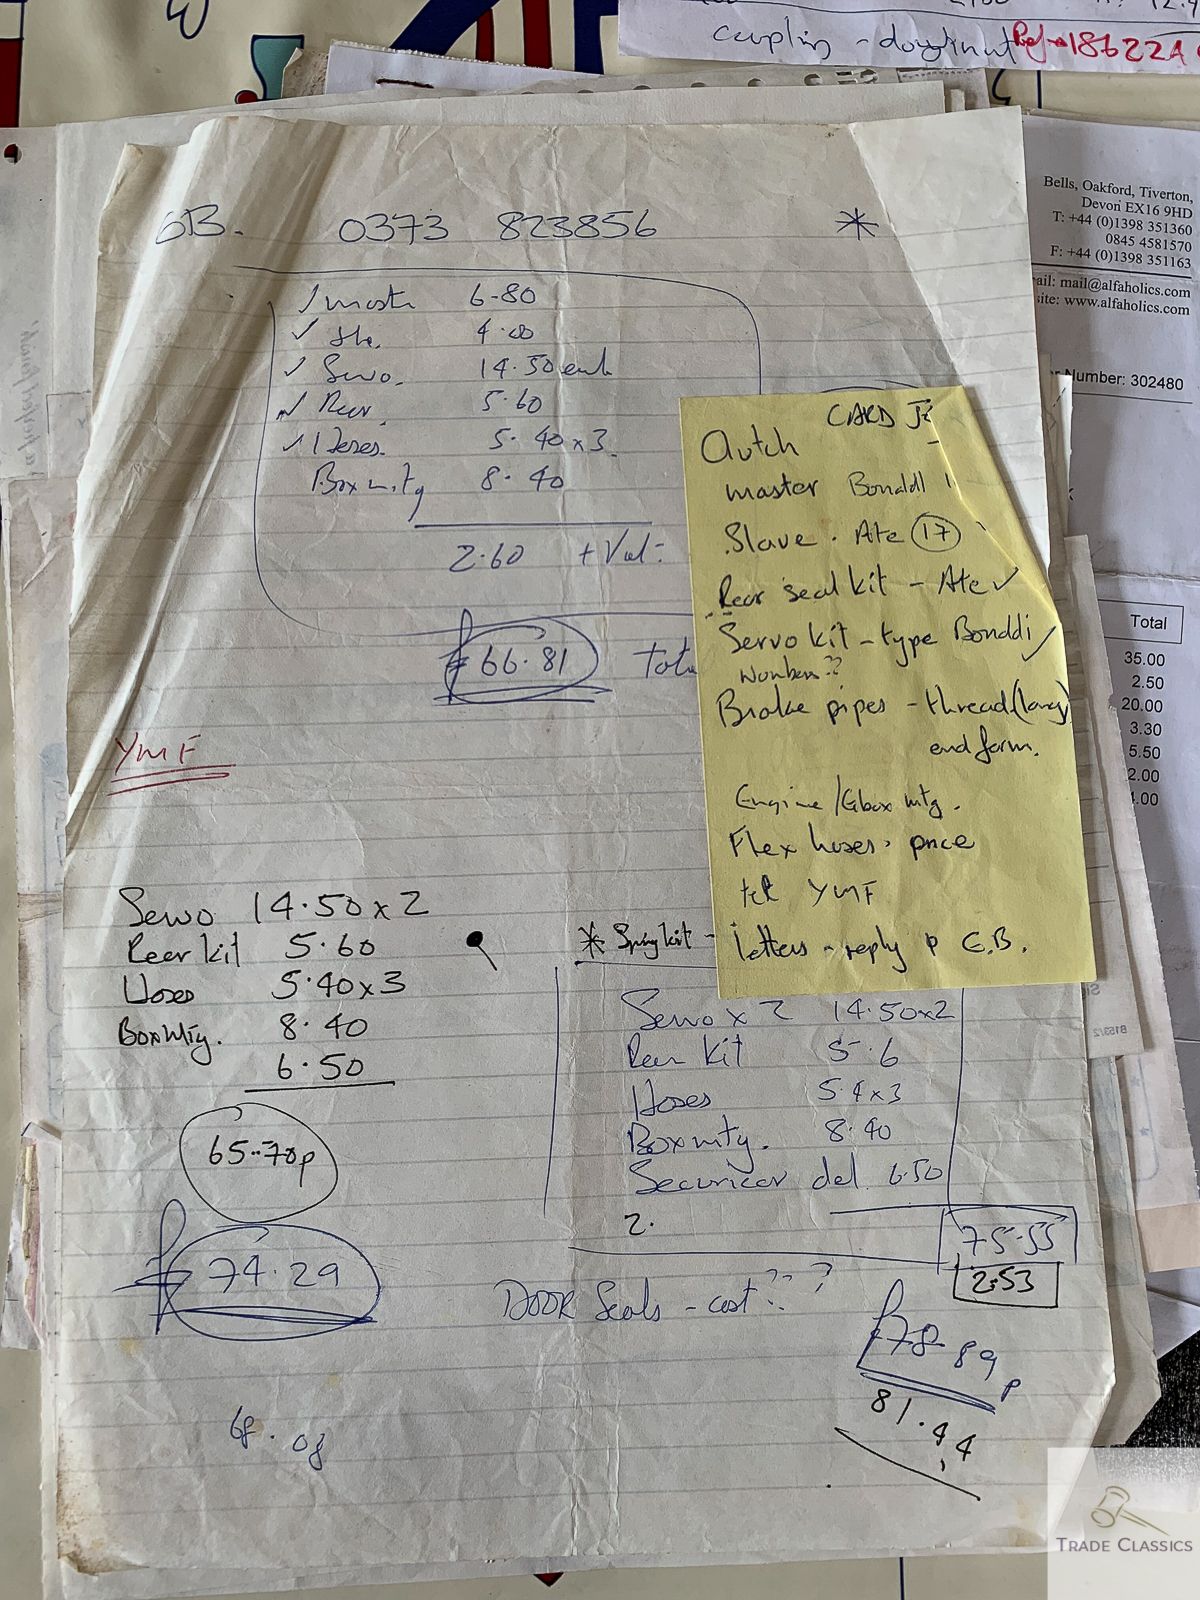 coupling - doughnut Ref → 18622A
Bells, Oakford, Tiverton,
Devon EX16 9HD
T: +44 (0)1398 351360
0845 4581570
F: +44 (0)1398 351163
ail: mail@alfaholics.com
site: www.alfaholics.com
r Number: 302480
Total
35.00
2.50
20.00
3.30
5.50
2.00
4.00
GB. 0373 823856 *
✓ 6.80
✓ 4.00
✓ Servo. 14.50 each
✓ Rear. 5.60
✓ Hoses. 5.40 x 3.
Box mtg 8.40
2.60 + Vat
£66.81
YMF
CARD
Clutch
master Bonaldi
Slave. Ate 17
Rear seal kit - Ate ✓
Servo kit - type Bonaldi ✓
Numbers??
Brake pipes - thread (long)
end form.
Engine/Gbox mtg.
Flex hoses. price
tel YMF
Letters - reply G.B.
Servo 14.50 x 2
Rear kit 5.60
Hoses 5.40 x 3
Box Mtg. 8.40
6.50
65.70p
£74.29
68.08
* Spring kit -
Servo x 2 14.50 x 2
Rear Kit 5.6
Hoses 5.4 x 3
Box mtg. 8.40
Securicor del 6.50
2.
75.55
2.53
DOOR Seals - cost???
£78 89p
81.44
B153/2
TRADE CLASSICS